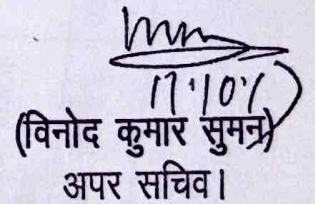 17.10.17
(विनोद कुमार सुमन)
अपर सचिव।